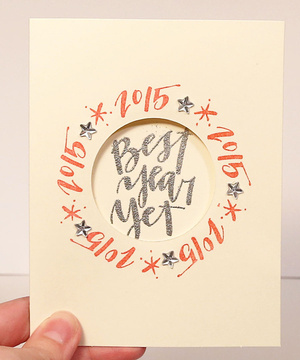 2015
2015
2015
2015
2015
Best
year
yet